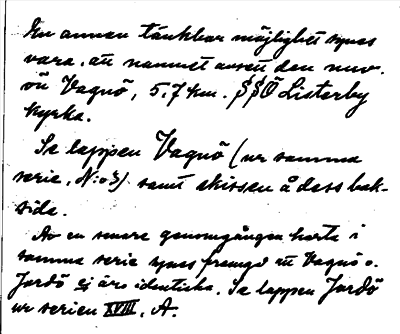 En annan tänkbar möjlighet synes
vara, att namnet avsett den nuv.
ön Vagnö, 5,7 km. SSÖ Listerby
kyrka.
Se lappen Vagnö (ur samma
serie, N:o 3) samt skissen å dess bak-
sida.
Av en senare genomgången karta i
samma serie synes framgå att Vagnö o.
Jordö ej äro identiska. Se lappen Jordö
ur serien XVIII, A.